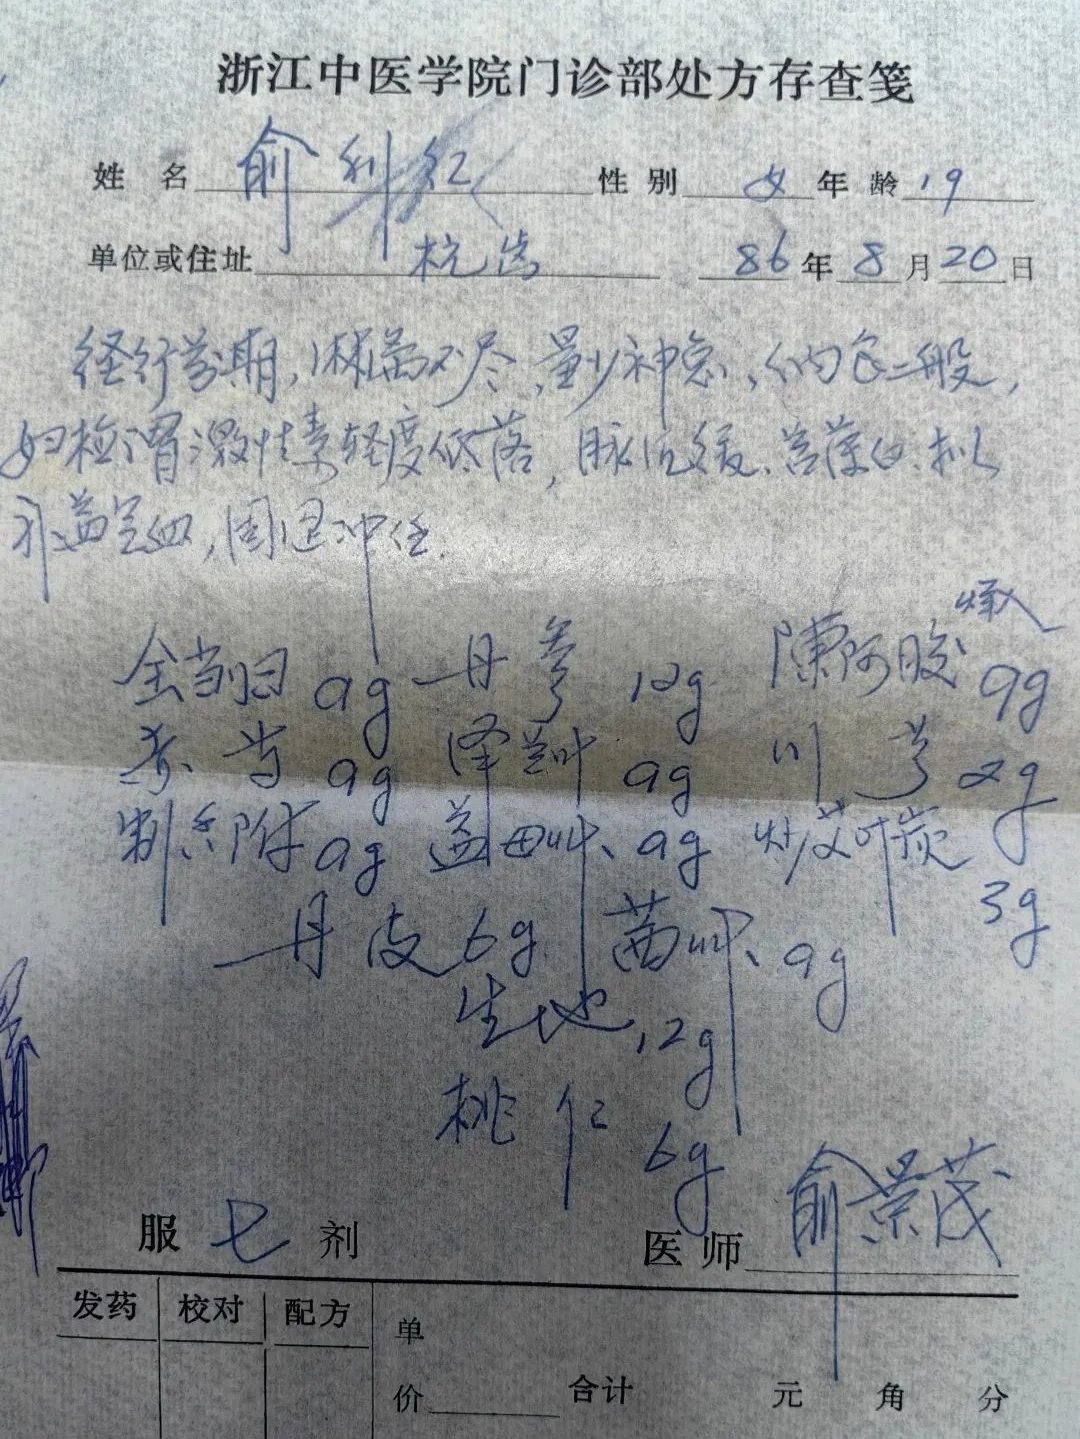 浙江中医学院门诊部处方存查笺
姓 名 俞利红 性 别 女 年 龄 19
单位或住址 杭齿 86年8月20日
经行芳期,淋漓不尽,量少神怠,纳食一般,
妇检谓激性素轻度低落,脉沉缓,苔薄白,拟
补益气血,固理冲任.
烊入
全当归 9g 丹参 12g 陈阿胶 9g
赤芍 9g 泽兰叶 9g 川芎 2g
制香附 9g 益母艸 9g 炒艾叶炭 3g
丹皮 6g 茜艸 9g
生地 12g
桃仁 6g
服 七 剂 医师 俞景茂
发药 校对 配方 单
价 合计 元 角 分